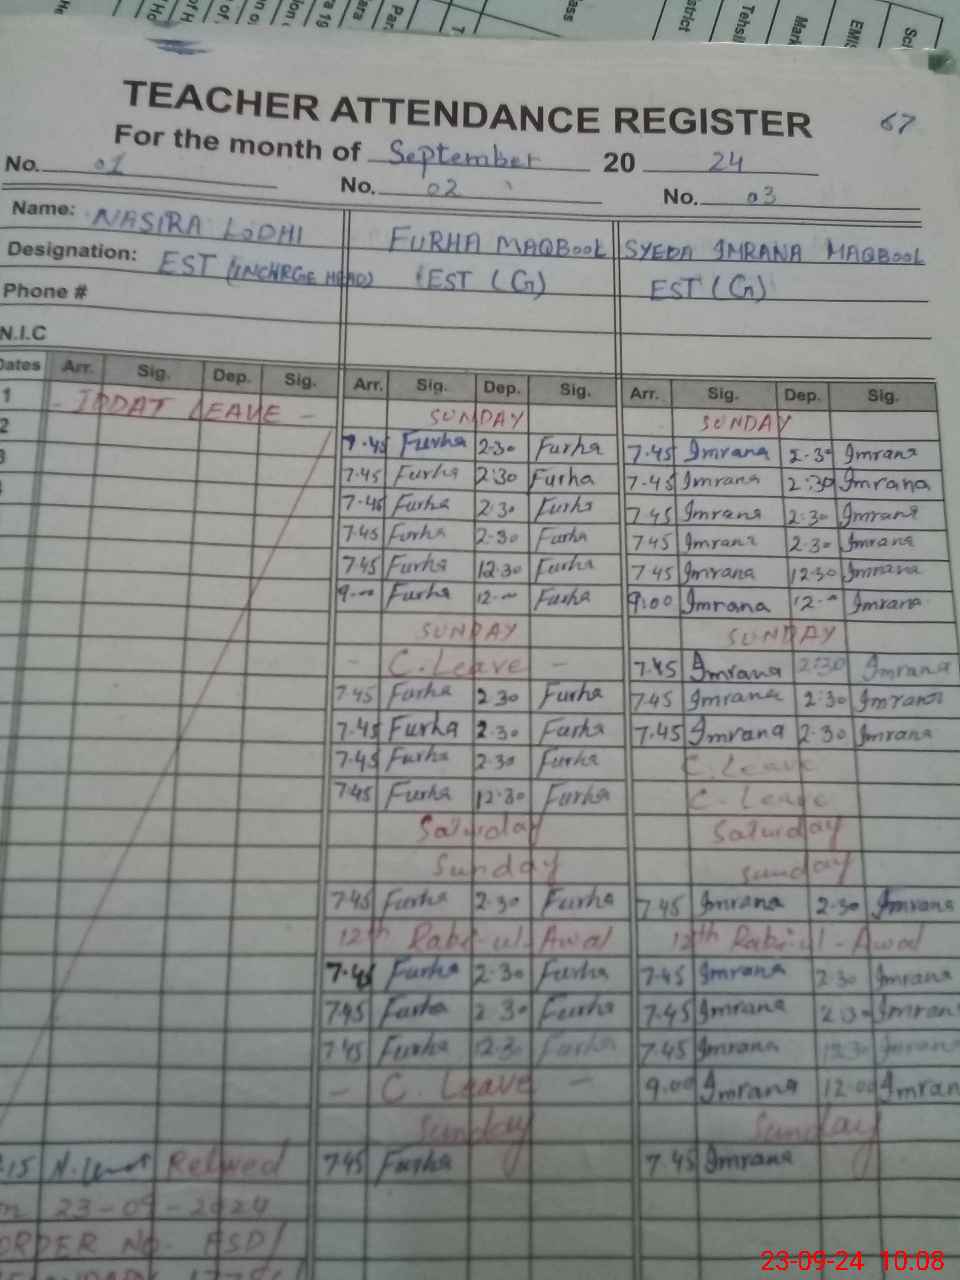 TEACHER ATTENDANCE REGISTER 67
For the month of September 20 24
No. 01 No. 02 No. 03
Name: NASIRA LODHI FURHA MAQBOOL SYEDA IMRANA MAQBOOL
Designation: EST (INCHRGE HEAD) EST (G) EST (G)
Phone #
N.I.C
Dates Arr. Sig. Dep. Sig. Arr. Sig. Dep. Sig. Arr. Sig. Dep. Sig.
1 - IDDAT LEAVE - SUNDAY SUNDAY
2 7.45 Furha 2.30 Furha 7.45 Imrana 2.30 Imrana
3 7.45 Furha 2:30 Furha 7.45 Imrana 2:30 Imrana
7.45 Furha 2.30 Furha 7.45 Imrana 2:30 Imrana
7.45 Furha 2.30 Furha 7.45 Imrana 2.30 Imrana
7.45 Furha 12.30 Furha 7.45 Imrana 12.30 Imrana
9.00 Furha 12.00 Furha 9:00 Imrana 12.00 Imrana
SUNDAY SUNDAY
- C. Leave - 7.45 Imrana 2:30 Imrana
7.45 Furha 2.30 Furha 7.45 Imrana 2:30 Imrana
7.45 Furha 2.30 Furha 7.45 Imrana 2.30 Imrana
7.45 Furha 2.30 Furha C. Leave
7.45 Furha 12.30 Furha C. Leave
Saturday Saturday
Sunday Sunday
7.45 Furha 2.30 Furha 7.45 Imrana 2.30 Imrana
12th Rabi-ul-Awal 12th Rabi-ul-Awal
7.45 Furha 2.30 Furha 7.45 Imrana 2.30 Imrana
7.45 Furha 2.30 Furha 7.45 Imrana 2.30 Imran
7.45 Furha 12.30 Furha 7.45 Imrana 12.30 Imrana
- C. Leave - 9.00 Imrana 12.00 Imran
Sunday Sunday
.15 7.45 Furha 7.45 Imrana
23-09-2024
ORDER No.
23-09-24 10:08